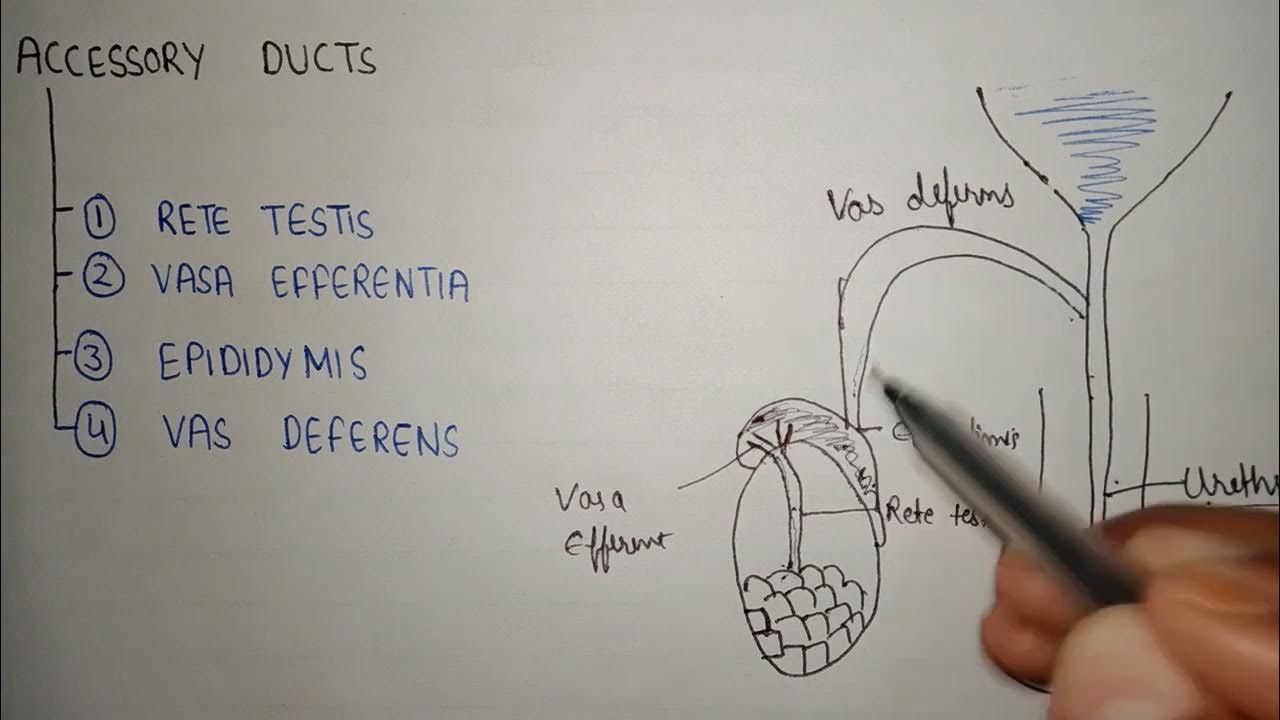 ACCESSORY DUCTS
1 RETE TESTIS
2 VASA EFFERENTIA
3 EPIDIDYMIS
4 VAS DEFERENS
Vas deferns
Vasa
Efferent
Rete tes
Ureth